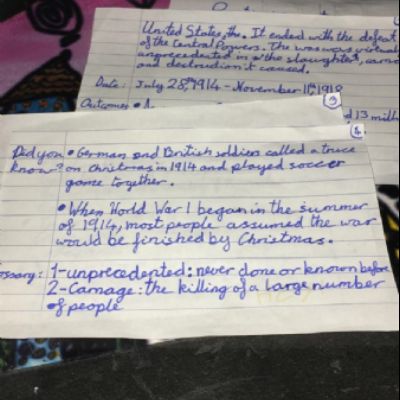 United States, the. It ended with the defeat
of the Central Powers. The war was virtual
unprecedented in the slaughter,
and destruction it caused.
Date: July 28th, 1914 - November 11th 1918
Outcomes
d 13 mill
Did you • German and British soldiers called a truce
Know? on Christmas in 1914 and played soccer
game together.
• When World War 1 began in the summer
of 1914, most people assumed the war
would be finished by Christmas.
ossary: 1-unprecedented: never done or known before
2-Carnage: the killing of a large number
of people